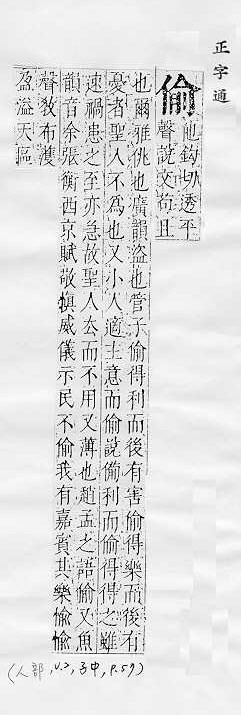 正字通
偷 他鉤切透平
聲說文苟且
也爾雅佻也廣韻盜也管子偷得利而後有害偷得樂而後有
憂者聖人不為也又小人適主意而偷說備利而偷得得之雖
速禍患之至亦急故聖人去而不用又薄也趙孟之語偷又魚
韻音余張衡西京賦敬慎威儀示民不偷我有嘉賓其樂愉愉
聲教布濩
盈溢天區
(人部, v.2, 子中, p.59)